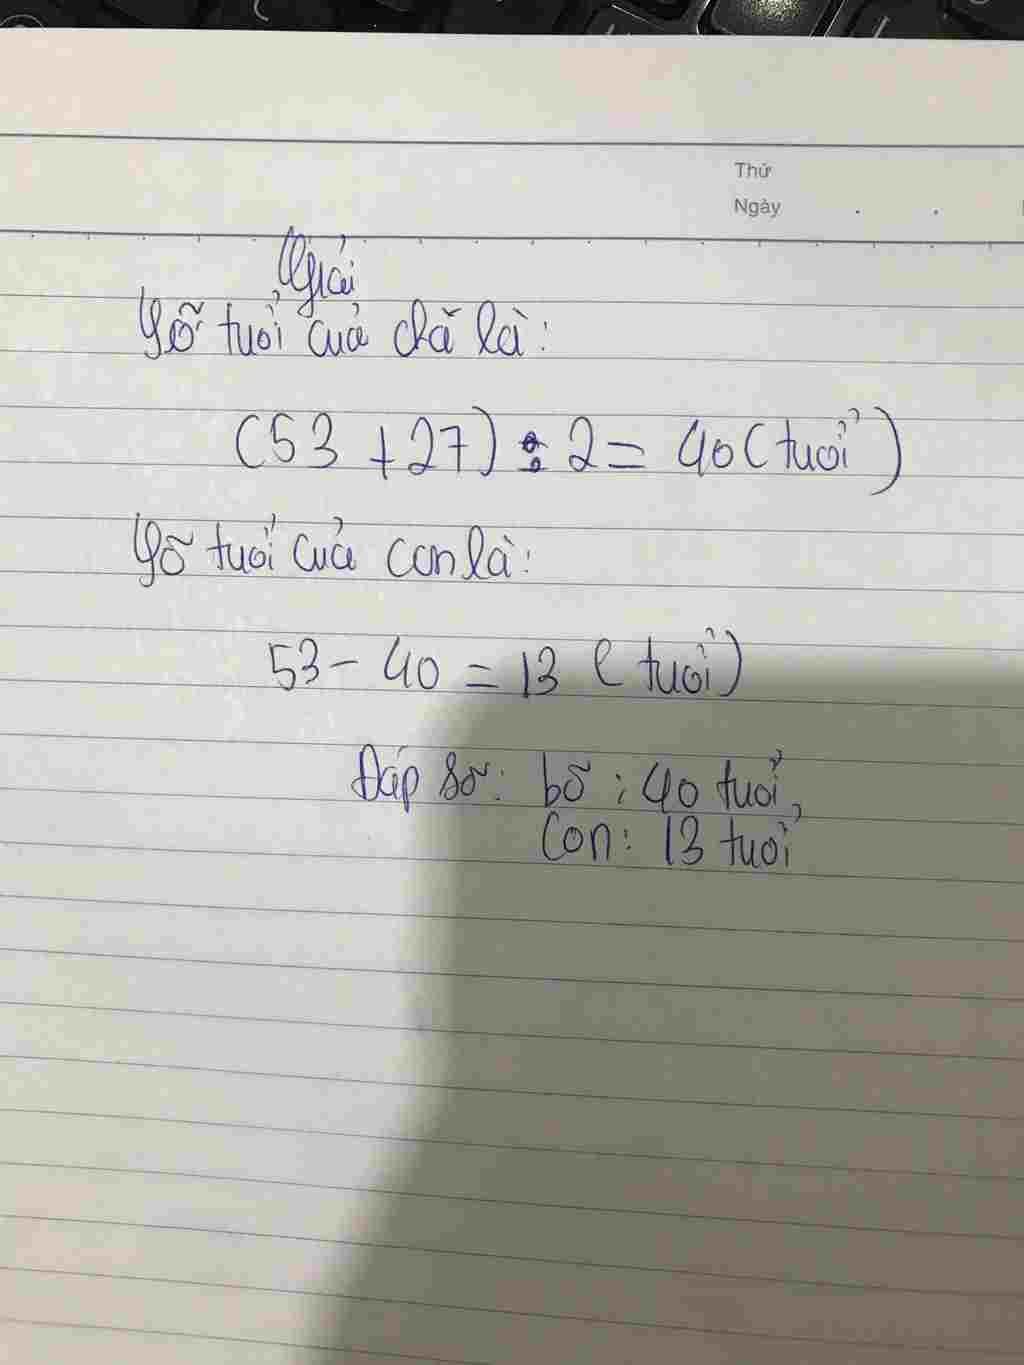 Thứ
Ngày
Giải
Số tuổi của chă là:
(53 + 27) : 2 = 40 (tuổi)
Số tuổi của con là:
53 - 40 = 13 (tuổi)
Đáp số: bố : 40 tuổi,
Con: 13 tuổi